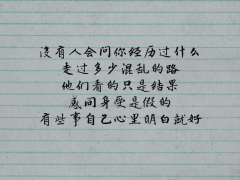 没有人会问你经历过什么
走过多少混乱的路
他们看的只是结果
感同身受是假的
有些事自己心里明白就好